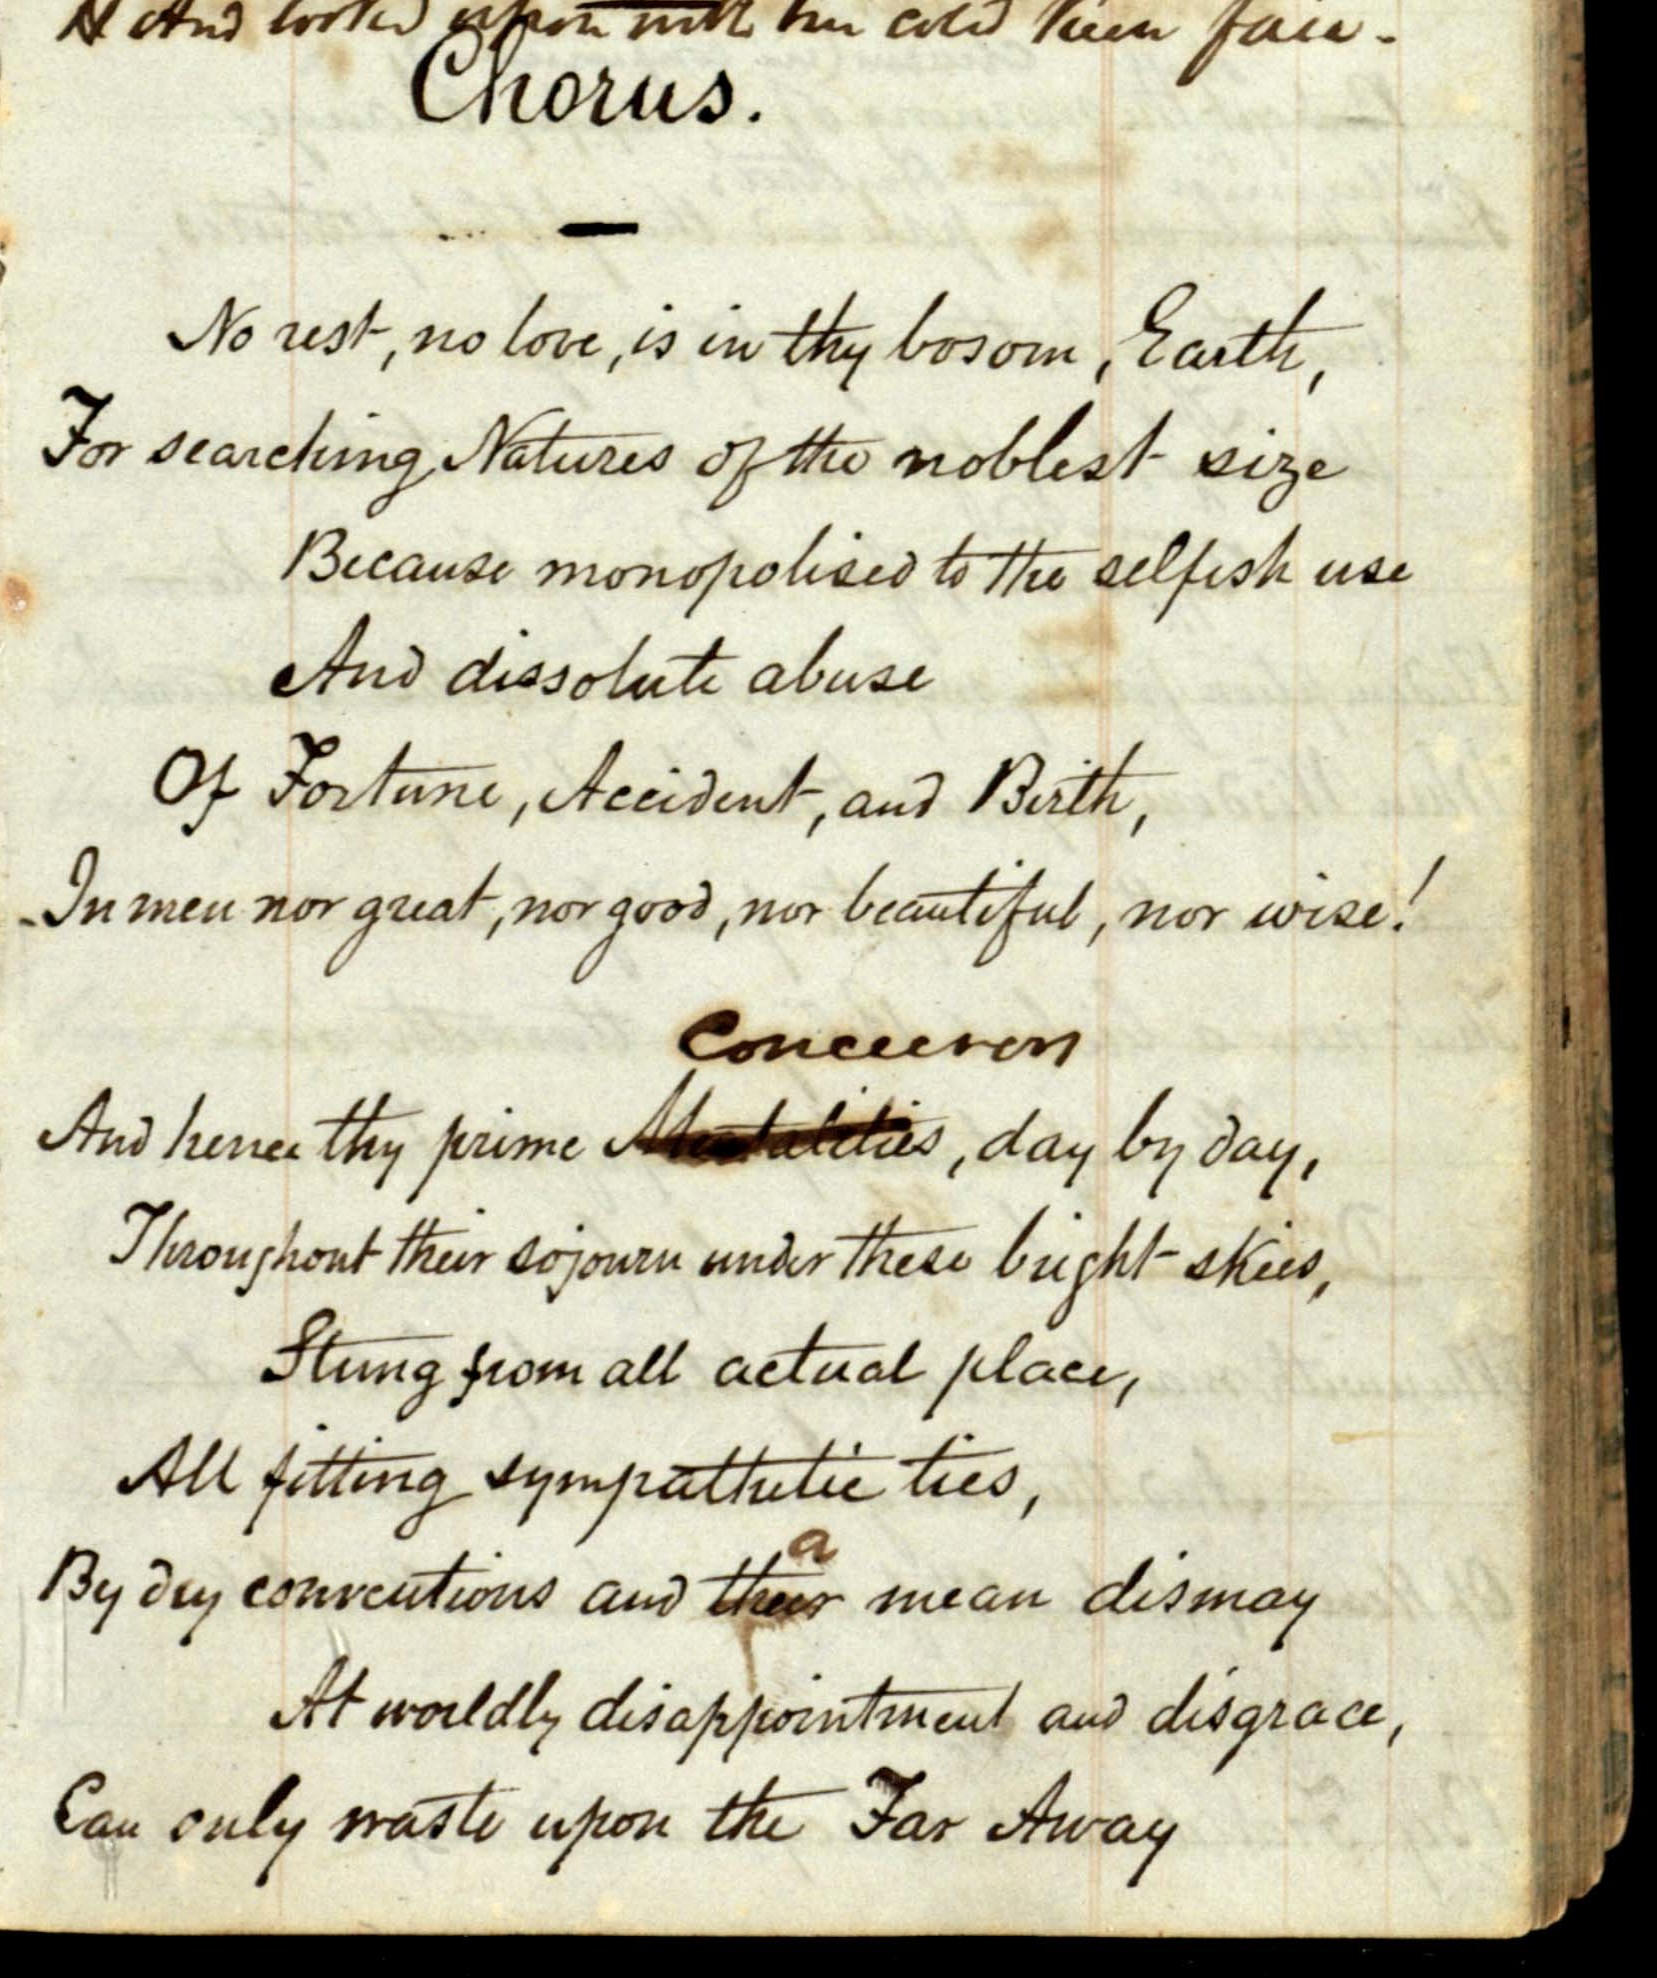 And looked upon with her cold keen face.
Chorus.
No rest, no love, is in thy bosom, Earth,
For searching Natures of the noblest size
Because monopolised to the selfish use
And dissolute abuse
Of Fortune, Accident, and Birth,
In men nor great, nor good, nor beautiful, nor wise!
And hence thy prime Mentalities, day by day,
Throughout their sojourn under these bright skies,
Stung from all actual place,
All fitting sympathetic ties,
a
By dry conventions and their mean dismay
At worldly disappointment and disgrace,
Can only waste upon the Far Away